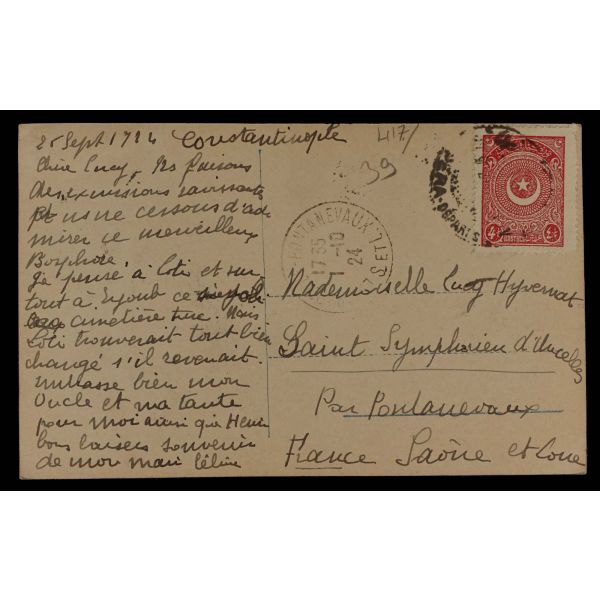 25 Sept 1924 Constantinople
Chère Lucy, Ns faisons
des excursions ravissantes
et ns ne cessons d'ad
mirer ce merveilleux
Bosphore.
Je pense à Loti et sur
tout à Eyoub ce joli
cimetière turc. Mais
Loti trouverait tout bien
changé s'il revenait.
embrasse bien mon
Oncle et ma tante
pour moi ainsi que Henri
bons baisers souvenir
de mon mari Céline
417/
39
PONTANEVAUX
S.ET L.
17 35
1 - 10
24
PERA-DEPART
4½
4½
Mademoiselle Lucy Hyvernat
Saint Symphorien d'Ancelles
Par Pontanevaux
France Saône et Loire